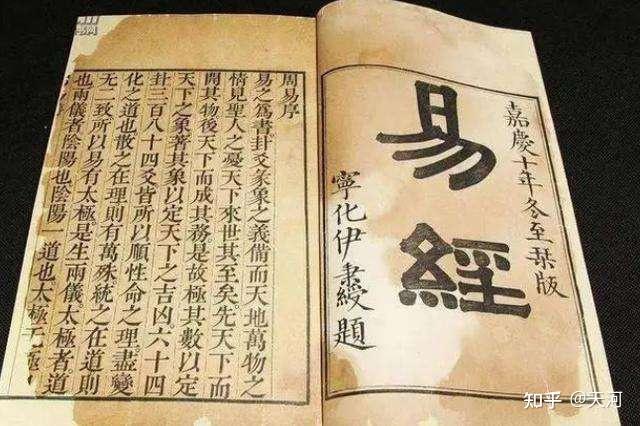 嘉慶十年冬至栞版
易經
寧化伊秉綬題
周易序
易之爲書卦爻彖象之義備而天地萬物之
情見聖人之憂天下來世其至矣先天下而
開其物後天下而成其務是故極其數以定
天下之象著其象以定天下之吉凶六十四
卦三百八十四爻皆所以順性命之理盡變
化之道也散之在理則有萬殊統之在道則
无二致所以易有太極是生兩儀太極者道
也兩儀者陰陽也陰陽一道也太極无極
知乎 @天河